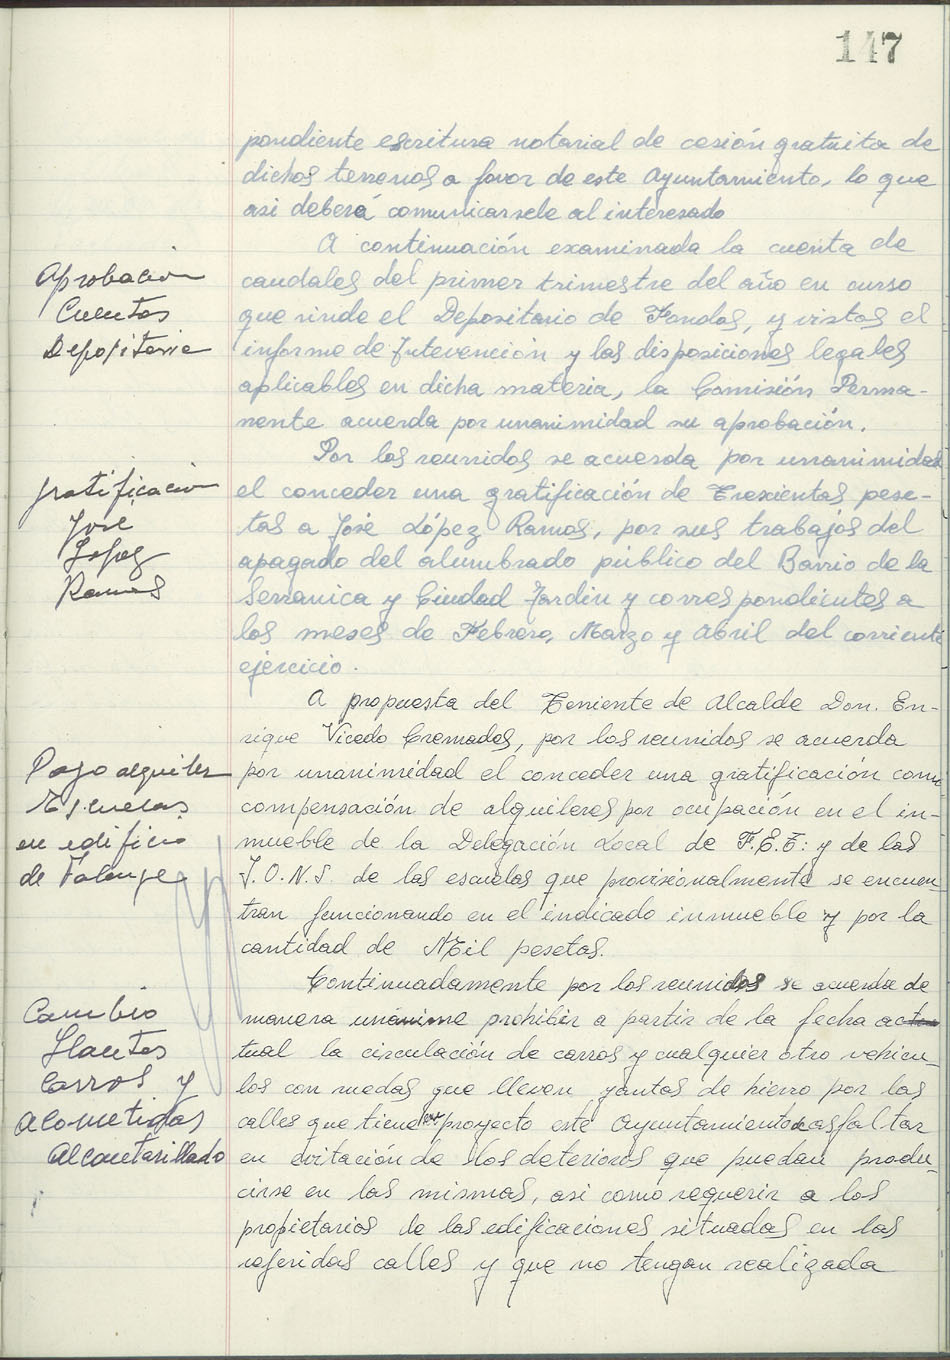 147
pondiente escritura notarial de cesión gratuita de
dichos terrenos a favor de este Ayuntamiento, lo que
asi deberá comunicarsele al interesado
A continuación examinada la cuenta de
Aprobación
Cuentas
Depositaria
caudales del primer trimestre del año en curso
que rinde el Depositario de Fondos, y vistos el
informe de Intevención y las disposiciones legales
aplicables en dicha materia, la Comisión Perma-
nente acuerda por unanimidad su aprobación.
Por los reunidos se acuerda por unanimidad
gratificación
José
López
Ramos
el conceder una gratificación de Trescientas pese-
tas a José López Ramos, por sus trabajos del
apagado del alumbrado público del Barrio de la
Serranica y Ciudad Jardin y correspondientes a
los meses de Febrero, Marzo y Abril del corriente
ejercicio.
A propuesta del Teniente de Alcalde Don. En-
rique Vicedo Cremades, por los reunidos se acuerda
Pago alquiler
Escuelas
en edificio
de Falange
por unanimidad el conceder una gratificación como
compensación de alquileres por ocupación en el in-
mueble de la Delegación Local de F.E.T. y de las
J.O.N.S. de las escuelas que provisionalmente se encuen-
tran funcionando en el indicado inmueble y por la
cantidad de Mil pesetas.
Continuadamente por los reunidos se acuerda de
Cambio
Llantas
Carros y
Acometidas
Alcantarillado
manera unánime prohibir a partir de la fecha ac
tual la circulación de carros y cualquier otro vehicu-
los con ruedas que lleven yantas de hierro por las
calles que tiene en proyecto este Ayuntamiento asfaltar
en evitación de los deterioros que puedan produ-
cirse en las mismas, asi como requerir a los
propietarios de las edificaciones situadas en las
referidas calles y que no tengan realizada